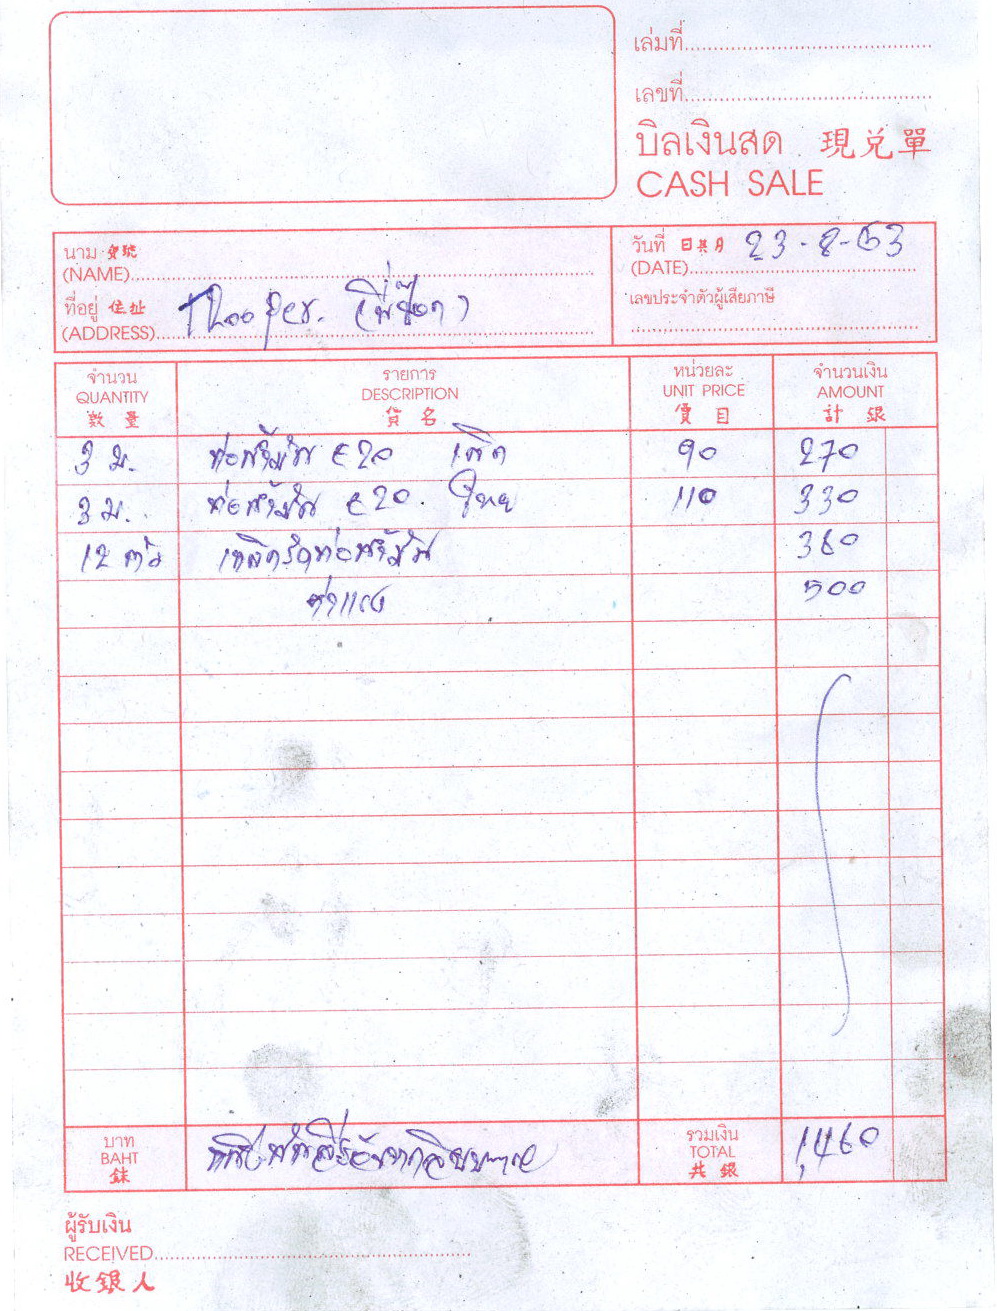 เล่มที่
เลขที่
บิลเงินสด 現兌單
CASH SALE
นาม 寶號
(NAME)
วันที่ 日期 23-8-63
(DATE)
ที่อยู่ 住址
(ADDRESS)
เลขประจำตัวผู้เสียภาษี
จำนวน รายการ หน่วยละ จำนวนเงิน
QUANTITY DESCRIPTION UNIT PRICE AMOUNT
數量 貨名 價目 計銀
3 ม. ท่อน้ำมัน E20 เล็ก 90 270
3 ม. ท่อน้ำมัน E20 ใหญ่ 110 330
12 ตัว เหล็กรัดท่อน้ำมัน 360
ค่าแรง 500
บาท รวมเงิน
BAHT หนึ่งพันสี่ร้อยหกสิบบาท TOTAL 1,460
銖 共銀
ผู้รับเงิน
RECEIVED
收銀人